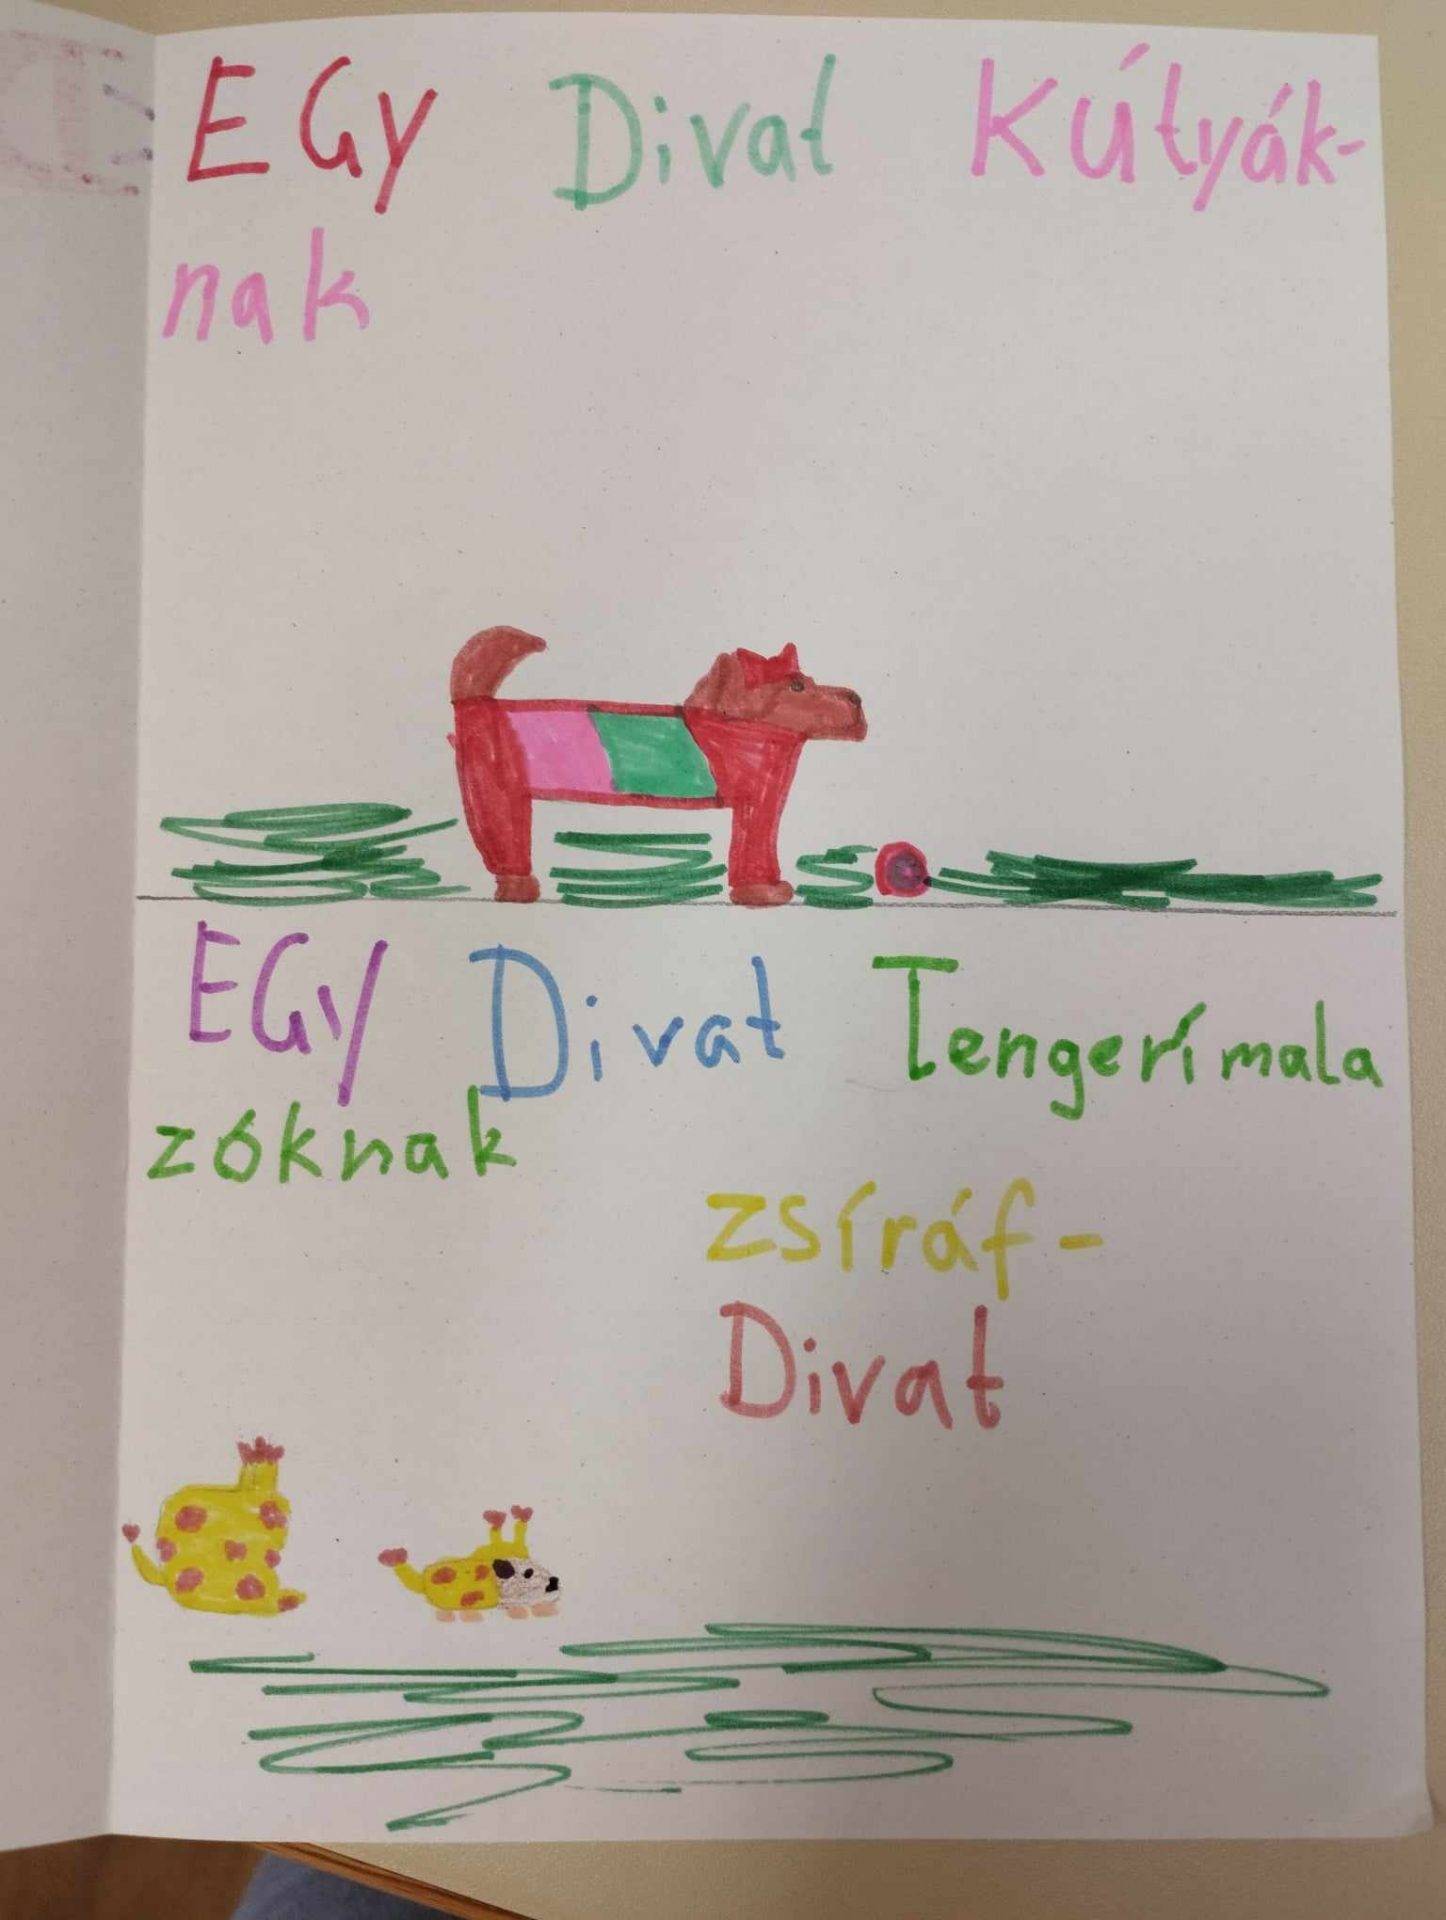 EGy Divat Kútyák-
nak
EGy Divat Tengerímala
zóknak
zsíráf-
Divat